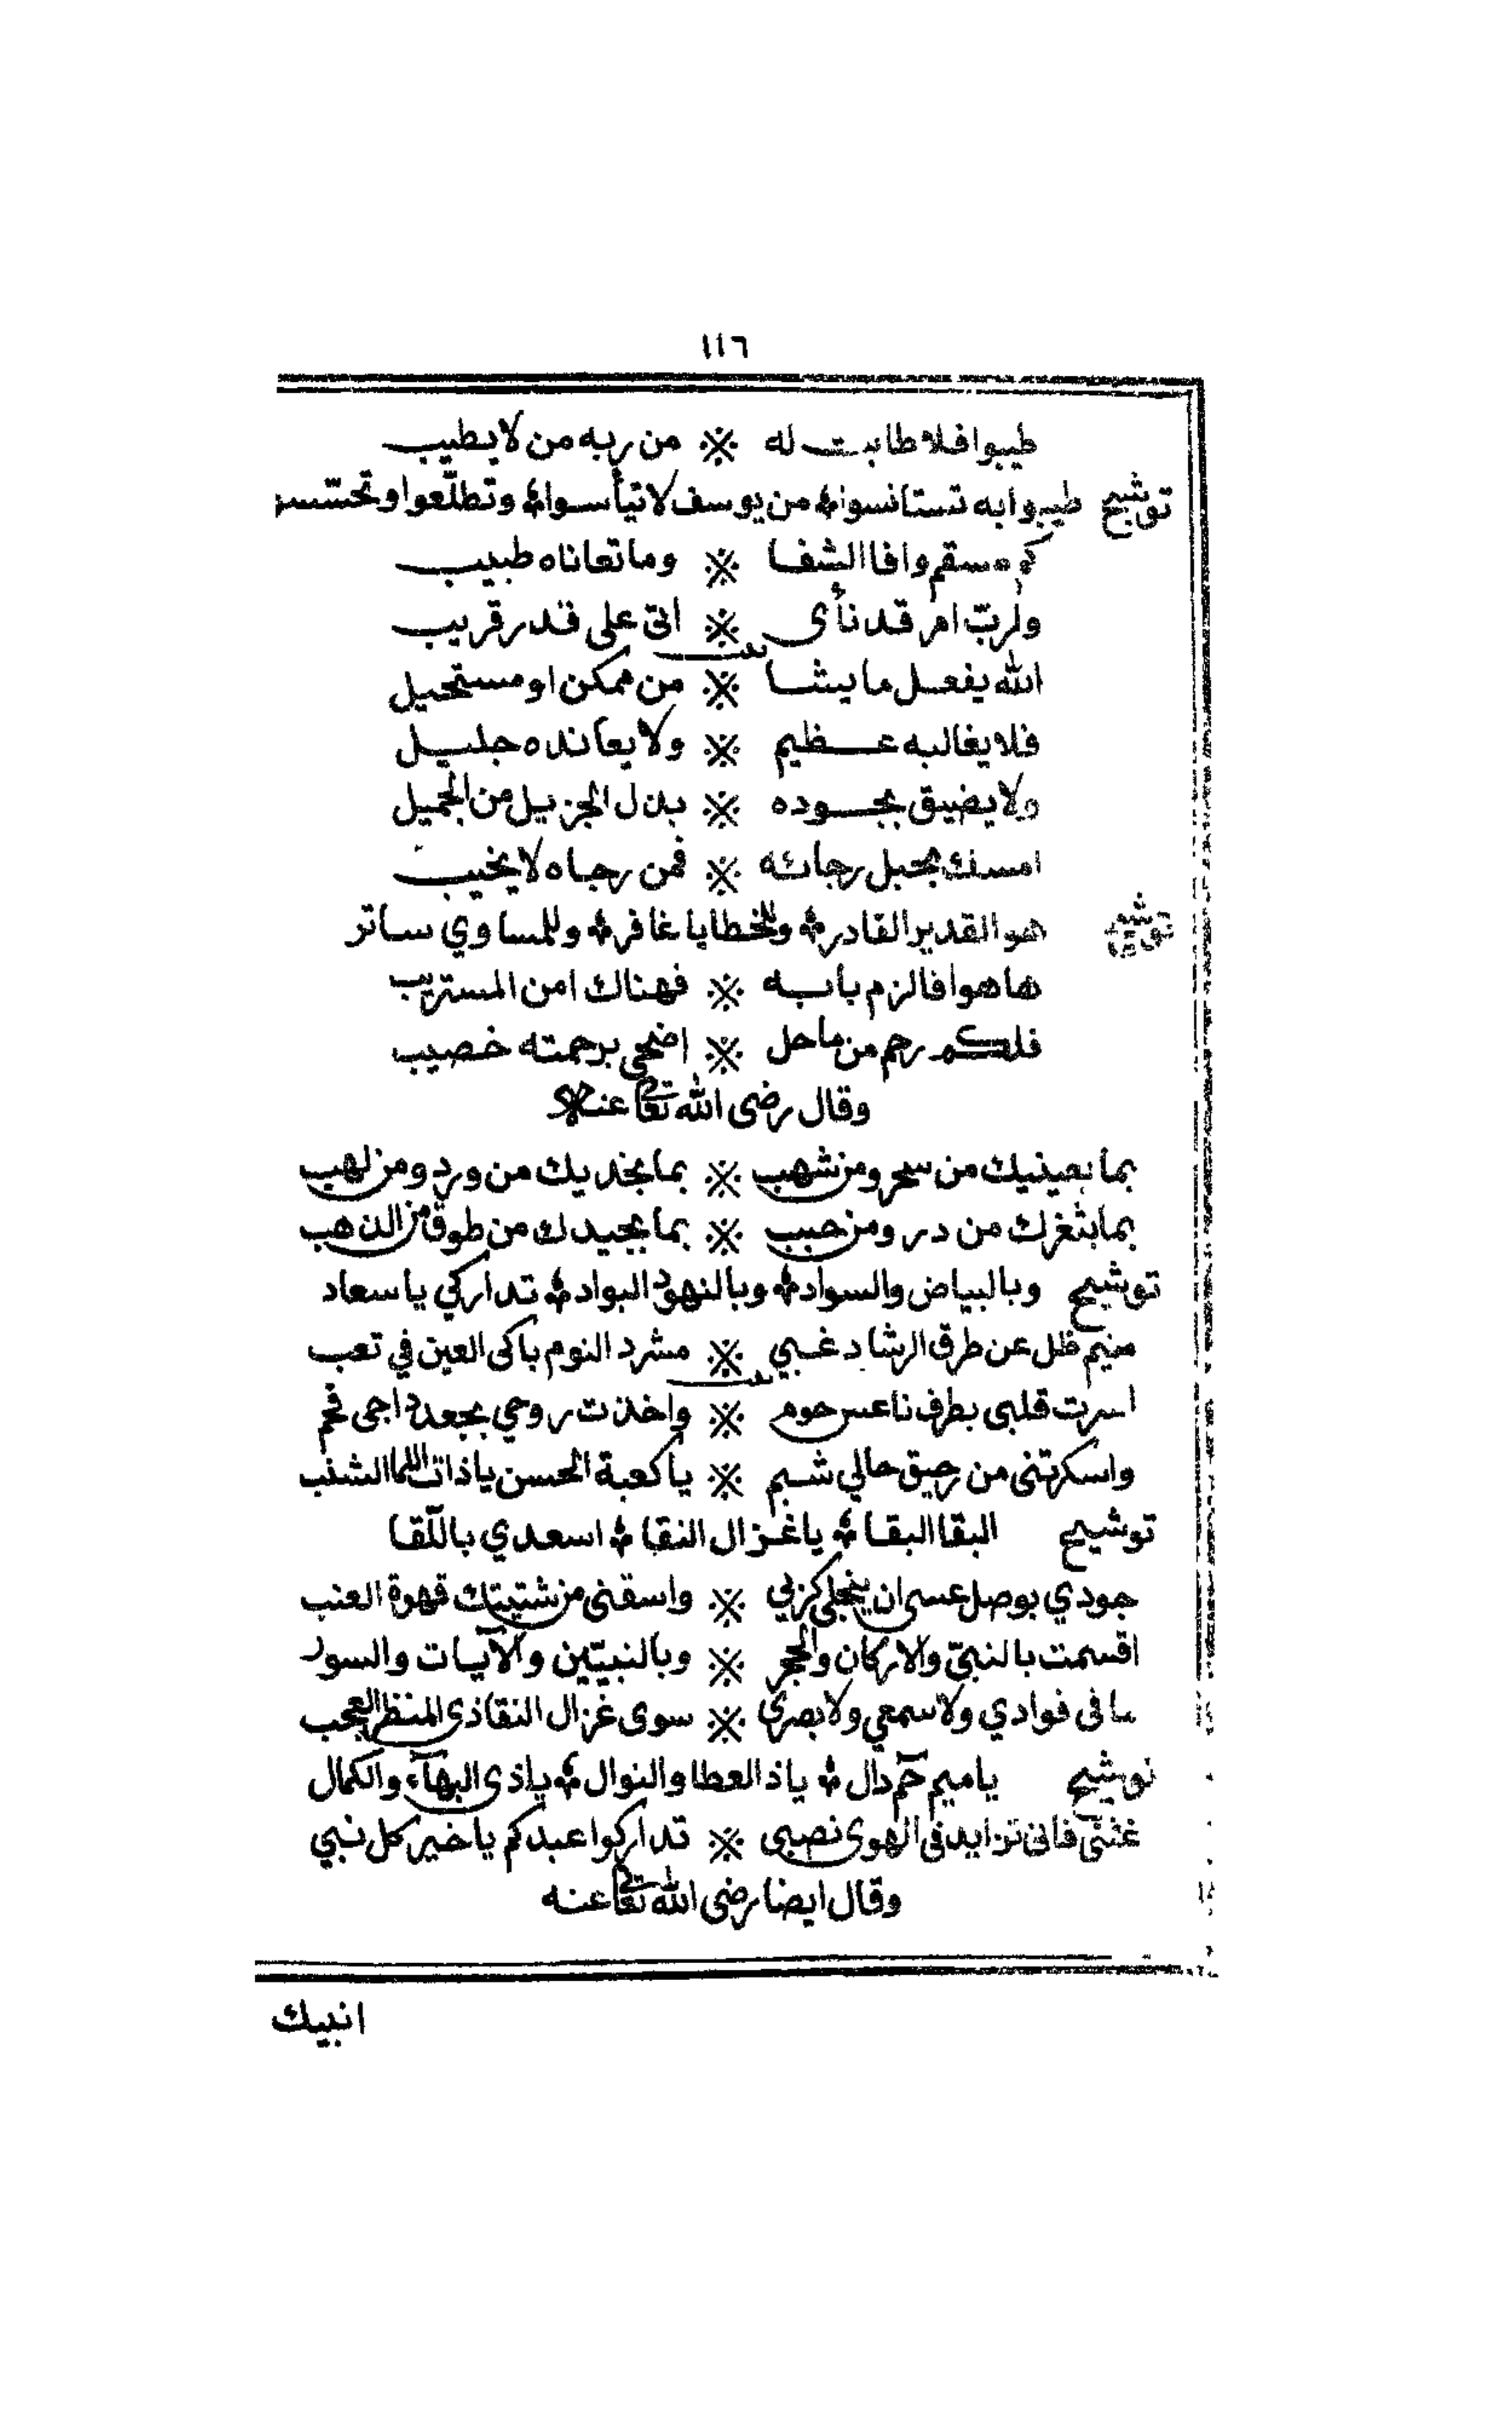 ١١٦
طيبوا فلا طابت له ※ من ربه من لا يطيب
توشيح طيبوا به تستانسوا ۞ من يوسف لا تيأسوا ۞ وتطلّعوا وتحسّسوا
كم مسقم وافا الشفا ※ وما تعاناه طبيب
ولربّ امر قد نأى ※ اتى على قدر قريب
بيت
الله يفعل ما يشا ※ من ممكن او مستحيل
فلا يغالبه عظيم ※ ولا يعانده جليل
ولا يضيق بجوده ※ بذل الجزيل من الجميل
امسك بحبل رجائه ※ فمن رجاه لا يخيب
توشيح هو القدير القادر ۞ وللخطايا غافر ۞ وللمساوي ساتر
ها هوا فالزم بابه ※ فهناك امن المستريب
فلكم رحم من ماحل ※ اضحى برحمته خصيب
وقال رضى الله تعالى عنه
بما بعينيك من سحر ومن شهب ※ بما بخديك من ورد ومن لهب
بما بثغرك من در ومن حبب ※ بما بجيدك من طوق من الذهب
توشيح وبالبياض والسواد ۞ وبالنهود البواد ۞ تداركي يا سعاد
متيم ظل عن طرق الرشاد غبي ※ مشرد النوم باكى العين في تعب
بيت
اسرت قلبى بطرف ناعس حوم ※ واخذت روحي بجعد داجى فحم
واسكرتنى من رحيق حالي شبم ※ يا كعبة الحسن يا ذات اللما الشنب
توشيح البقا البقا ۞ يا غزال النقا ۞ اسعدي باللّقا
جودي بوصل عسى ان ينجلى كربي ※ واسقنى من شتيتك قهوة العنب
اقسمت بالنبيّ والاركان والحجر ※ وبالنبيّين والآيات والسور
ما فى فوادي ولا سمعي ولا بصري ※ سوى غزال النقا ذى المنظر العجب
توشيح يا ميم حم دال ۞ يا ذا العطا والنوال ۞ يا ذى البهآء والكمال
غثنى فانى تزايد فى الهوى نصبى ※ تداركوا عبدكم يا خير كل نبي
وقال ايضا رضى الله تعالى عنه
انبيك